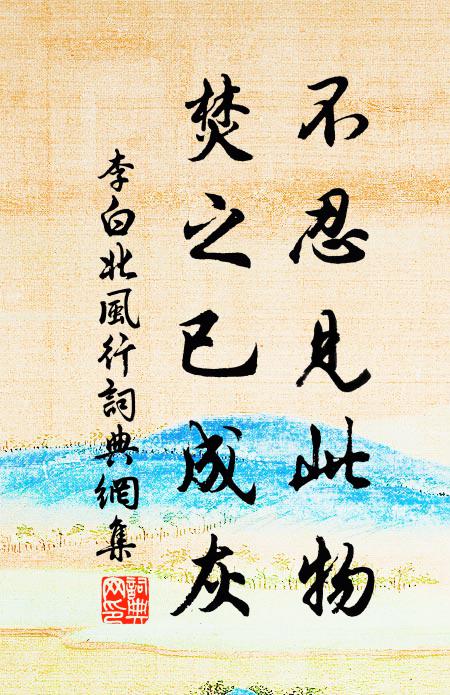 不忍見此物
焚之已成灰
李白北風行詞典網集
詞典網印